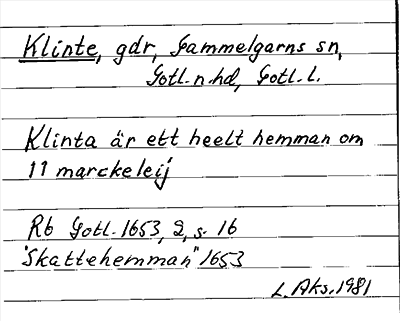 Klinte, gdr, Gammelgarns sn,
Gotl. n. hd, Gotl. l.
Klinta är ett heelt hemman om
11 marckeleij
Rb Gotl. 1653, 2, s. 16
"Skattehemman" 1653
L. Aks. 1981